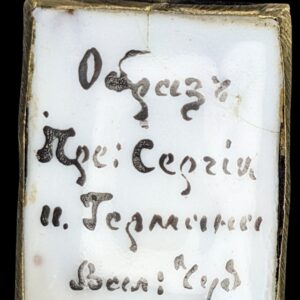 Образъ
Пре: Сергiя
и. Германа
Вал: Чуд